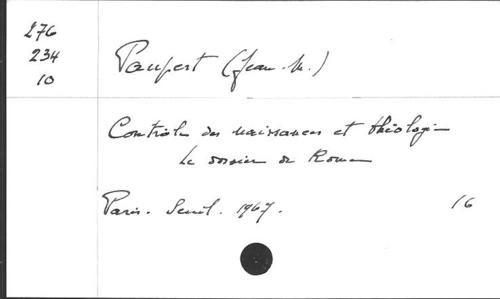 276
234
10
Paupert (Jean-M.)
Contrôle des naissances et théologie
Le dossier de Rome
Paris. Seuil. 1967.
16